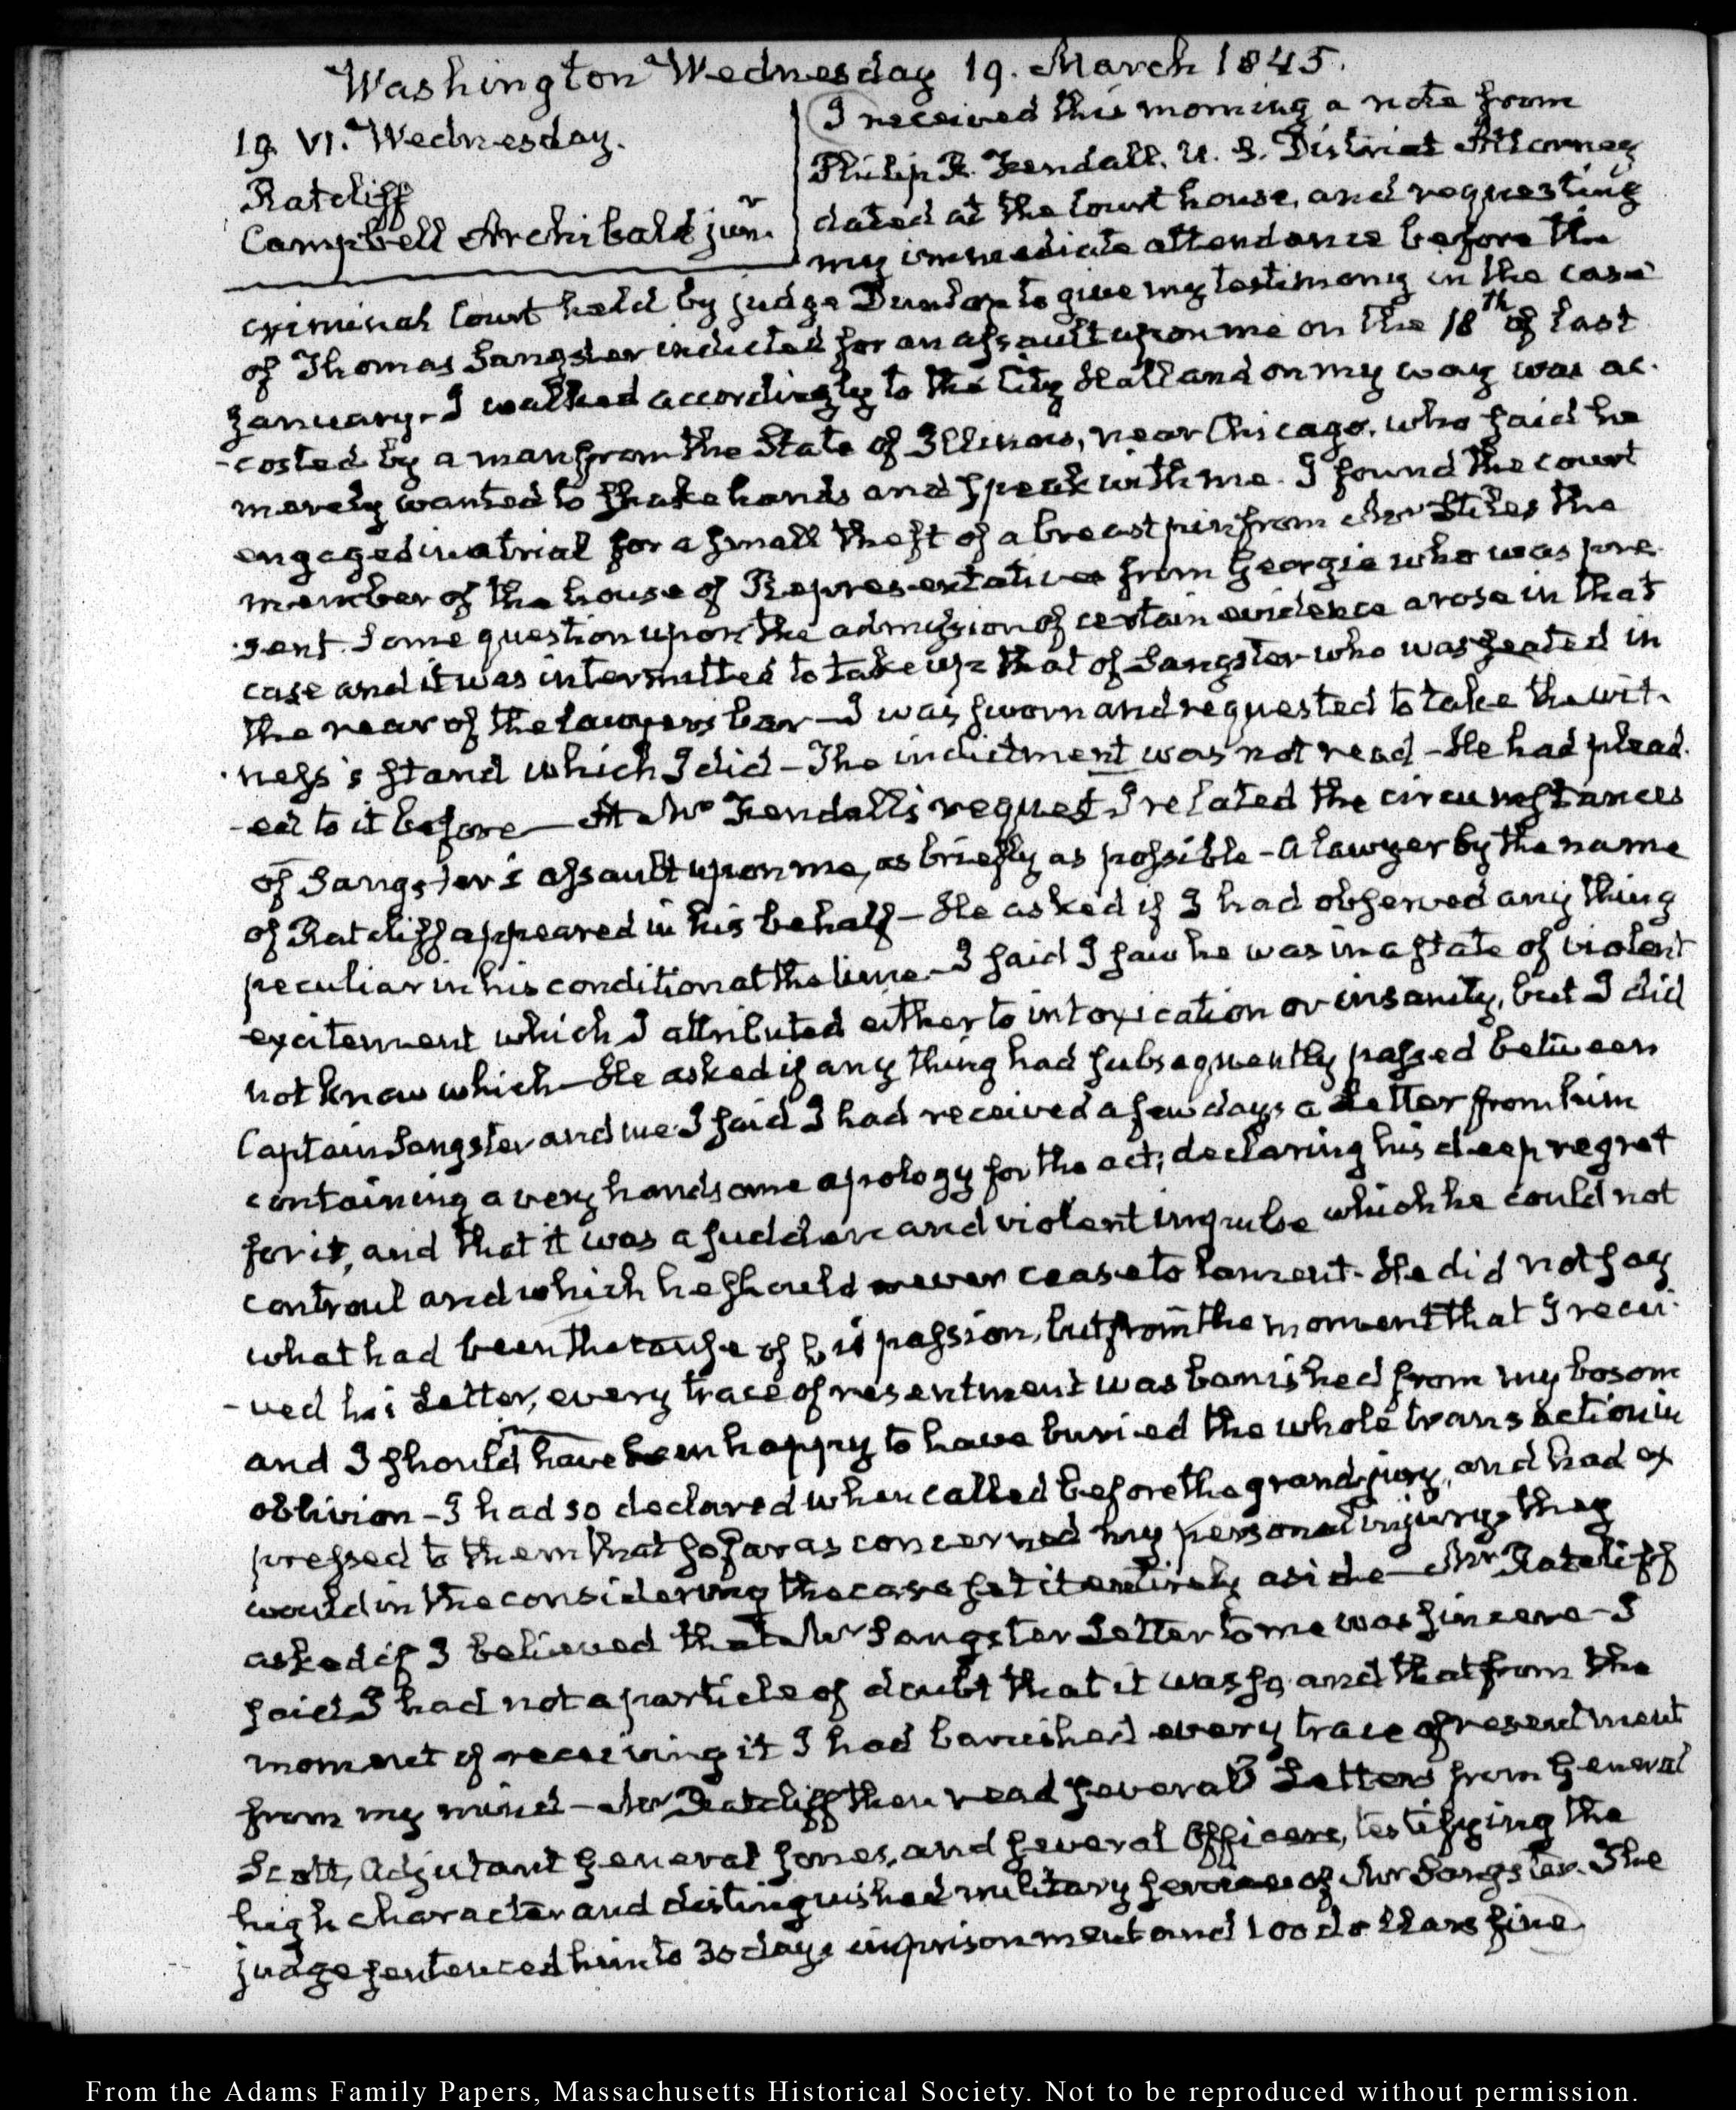 Washington Wednesday 19. March 1845.
19. VI. Wednesday.
Ratcliff
Campbell Archibald junr.
I received this morning a note from
Philip R. Fendall. U. S. District Attorney
dated at the Court house, and requesting
my immediate attendance before the
criminal Court held by judge Dunlop to give my testimony in the case
of Thomas Sangster indicted for an assault upon me on the 18th of last
January. I walked accordingly to the City Hall and on my way was ac-
-costed by a man from the State of Illinois, near Chicago, who said he
merely wanted to shake hands and speak with me. I found the court
engaged in a trial for a small theft of a breast pin from Mr Stiles the
member of the house of Representatives from Georgia who was pre-
-sent. Some question upon the admission of certain evidence arose in that
case and it was intermitted to take up that of Sangster who was seated in
the rear of the lawyers bar — I was sworn and requested to take the wit-
-ness's stand which I did — The indictment was not read — He had plead-
-ed to it before — At Mr Fendall's request I related the circumstances
of Sangster's assault upon me, as briefly as possible — A lawyer by the name
of Ratcliff appeared in his behalf — He asked if I had observed any thing
peculiar in his condition at the time — I said I saw he was in a state of violent
excitement which I attributed either to intoxication or insanity, but I did
not know which — He asked if any thing had subsequently passed between
Captain Sangster and me. I said I had received a few days a Letter from him
containing a very handsome apology for the act; declaring his deep regret
for it, and that it was a sudden and violent impulse which he could not
controul and which he should never cease to lament. He did not say
what had been the cause of his passion, but from the moment that I recei-
-ved his Letter, every trace of resentment was banished from my bosom
and I should have been happy to have buried the whole transaction in
oblivion — I had so declared when called before the grand-jury, and had ex
pressed to them that so far as concerned my personal injury, they
would in the considering the case set it entirely aside — Mr Ratcliff
asked if I believed that Mr Sangster Letter to me was sincere — I
said I had not a particle of doubt that it was so and that from the
moment of receiving it I had banished every trace of resentment
from my mind — Mr Ratcliff then read several Letters from General
Scott, Adjutant General Jones, and several Officers, testifying the
high character and distinguished military services of Mr Sangster. The
judge sentenced him to 30 days imprisonment and 100 dollars fine
From the Adams Family Papers, Massachusetts Historical Society. Not to be reproduced without permission.